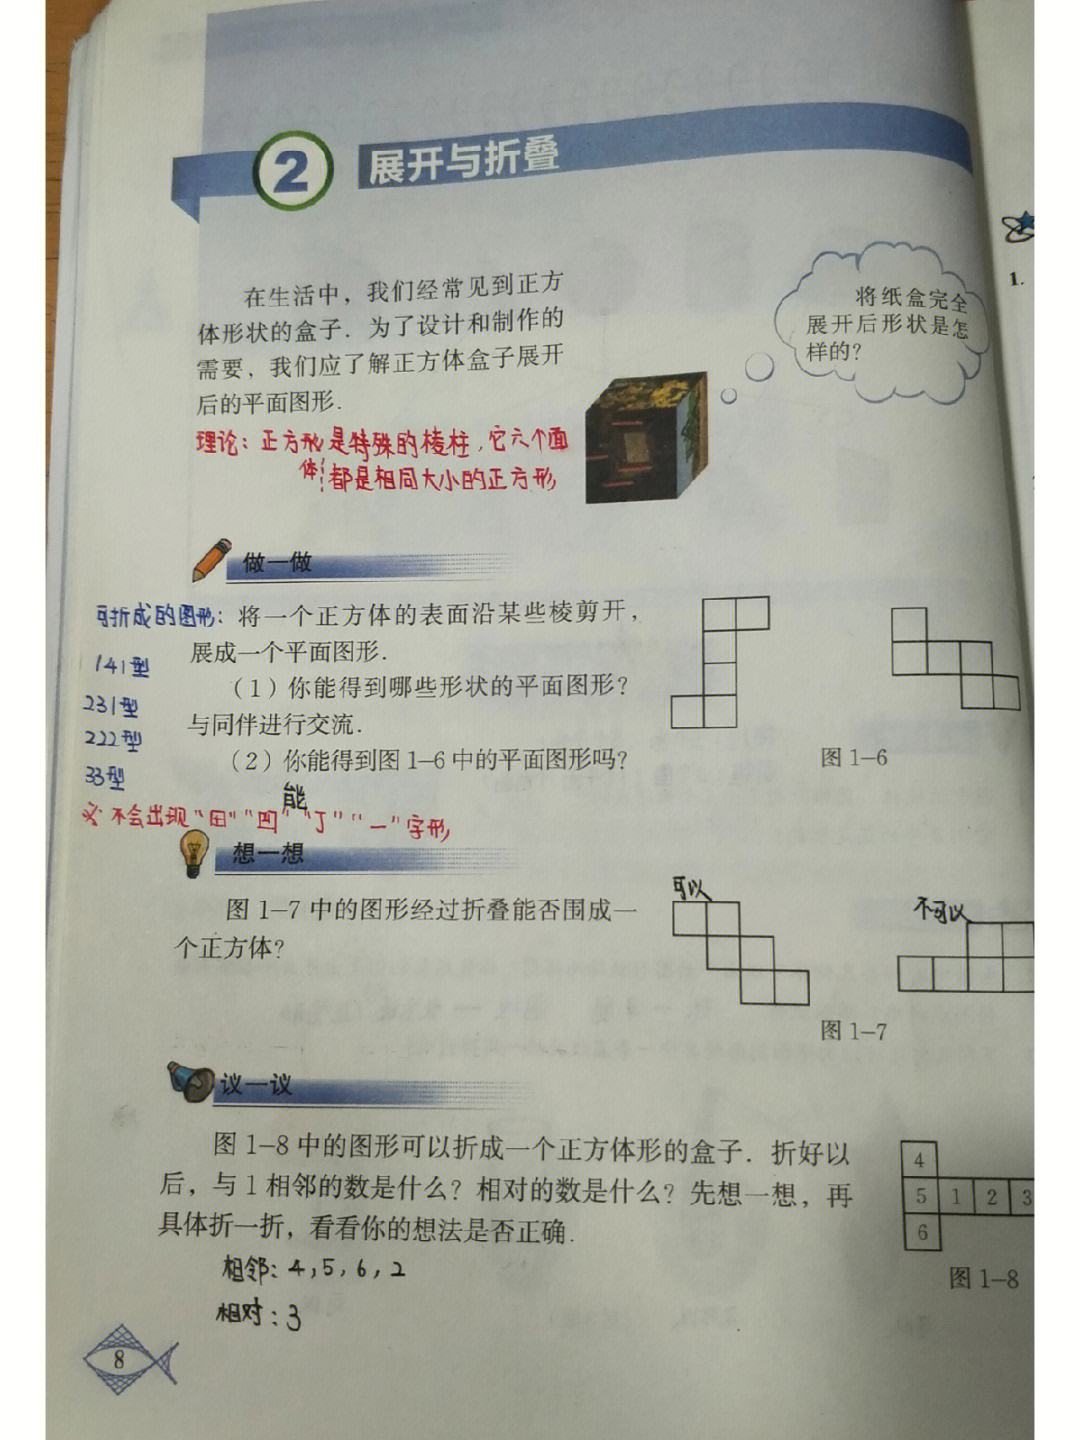 2 展开与折叠
在生活中，我们经常见到正方
体形状的盒子．为了设计和制作的
需要，我们应了解正方体盒子展开
后的平面图形．
将纸盒完全
展开后形状是怎
样的？
1.
理论：正方形是特殊的棱柱，它六个面
体 都是相同大小的正方形
做一做
可折成的图形：
141型
231型
222型
33型
将一个正方体的表面沿某些棱剪开，
展成一个平面图形．
（1）你能得到哪些形状的平面图形？
与同伴进行交流．
（2）你能得到图1-6中的平面图形吗？
能
图1-6
不会出现“田”“凹”“丁”“一”字形
想一想
图1-7中的图形经过折叠能否围成一
个正方体？
可以
不可以
图1-7
议一议
图1-8中的图形可以折成一个正方体形的盒子．折好以
后，与1相邻的数是什么？相对的数是什么？先想一想，再
具体折一折，看看你的想法是否正确．
4
5 1 2 3
6
图1-8
相邻：4，5，6，2
相对：3
8